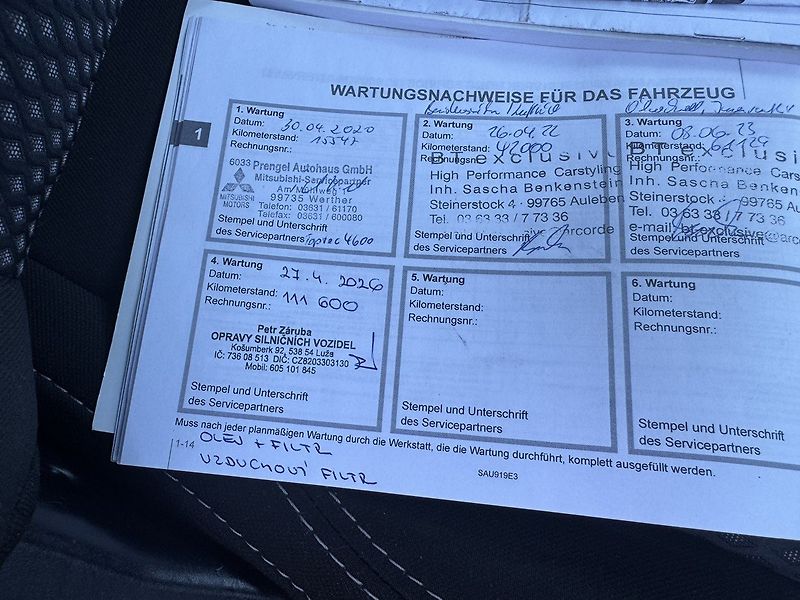 WARTUNGSNACHWEISE FÜR DAS FAHRZEUG
1
1. Wartung
Datum: 30.04.2020
Kilometerstand: 15547
Rechnungsnr.:
6033 Prengel Autohaus GmbH
Mitsubishi-Servicepartner
Am Mühlweg 1
99735 Werther
Telefon: 03631 / 61170
Telefax: 03631 / 600080
MITSUBISHI
MOTORS
Stempel und Unterschrift
des Servicepartners Toptec 4600
2. Wartung
Datum: 26.04.22
Kilometerstand: 42000
Rechnungsnr.:
BT exclusiv
High Performance Carstyling
Inh. Sascha Benkenstein
Steinerstock 4 · 99765 Auleben
Tel. 03 63 33 / 7 73 36
Stempel und Unterschrift
des Servicepartners
3. Wartung
Datum: 08.06.23
Kilometerstand:
Rechnungsnr.:
BT exclusi
High Performance Cars
Inh. Sascha Benken
Steinerstock 4 · 99765
Tel. 03 63 33 / 7 73 36
e-mail
Stempel und Unterschrift
des Servicepartners
4. Wartung
Datum: 27.4.2026
Kilometerstand: 111 600
Rechnungsnr.:
Petr Záruba
OPRAVY SILNIČNÍCH VOZIDEL
Košumberk 92, 538 54 Luža
IČ: 736 08 513 DIČ: CZ8203303130
Mobil: 605 101 845
Stempel und Unterschrift
des Servicepartners
5. Wartung
Datum:
Kilometerstand:
Rechnungsnr.:
Stempel und Unterschrift
des Servicepartners
6. Wartung
Datum:
Kilometerstand:
Rechnungsnr.:
Stempel und Unterschrift
des Servicepartners
Muss nach jeder planmäßigen Wartung durch die Werkstatt, die die Wartung durchführt, komplett ausgefüllt werden.
1-14
OLEJ + FILTR
VZDUCHOVÝ FILTR
SAU919E3